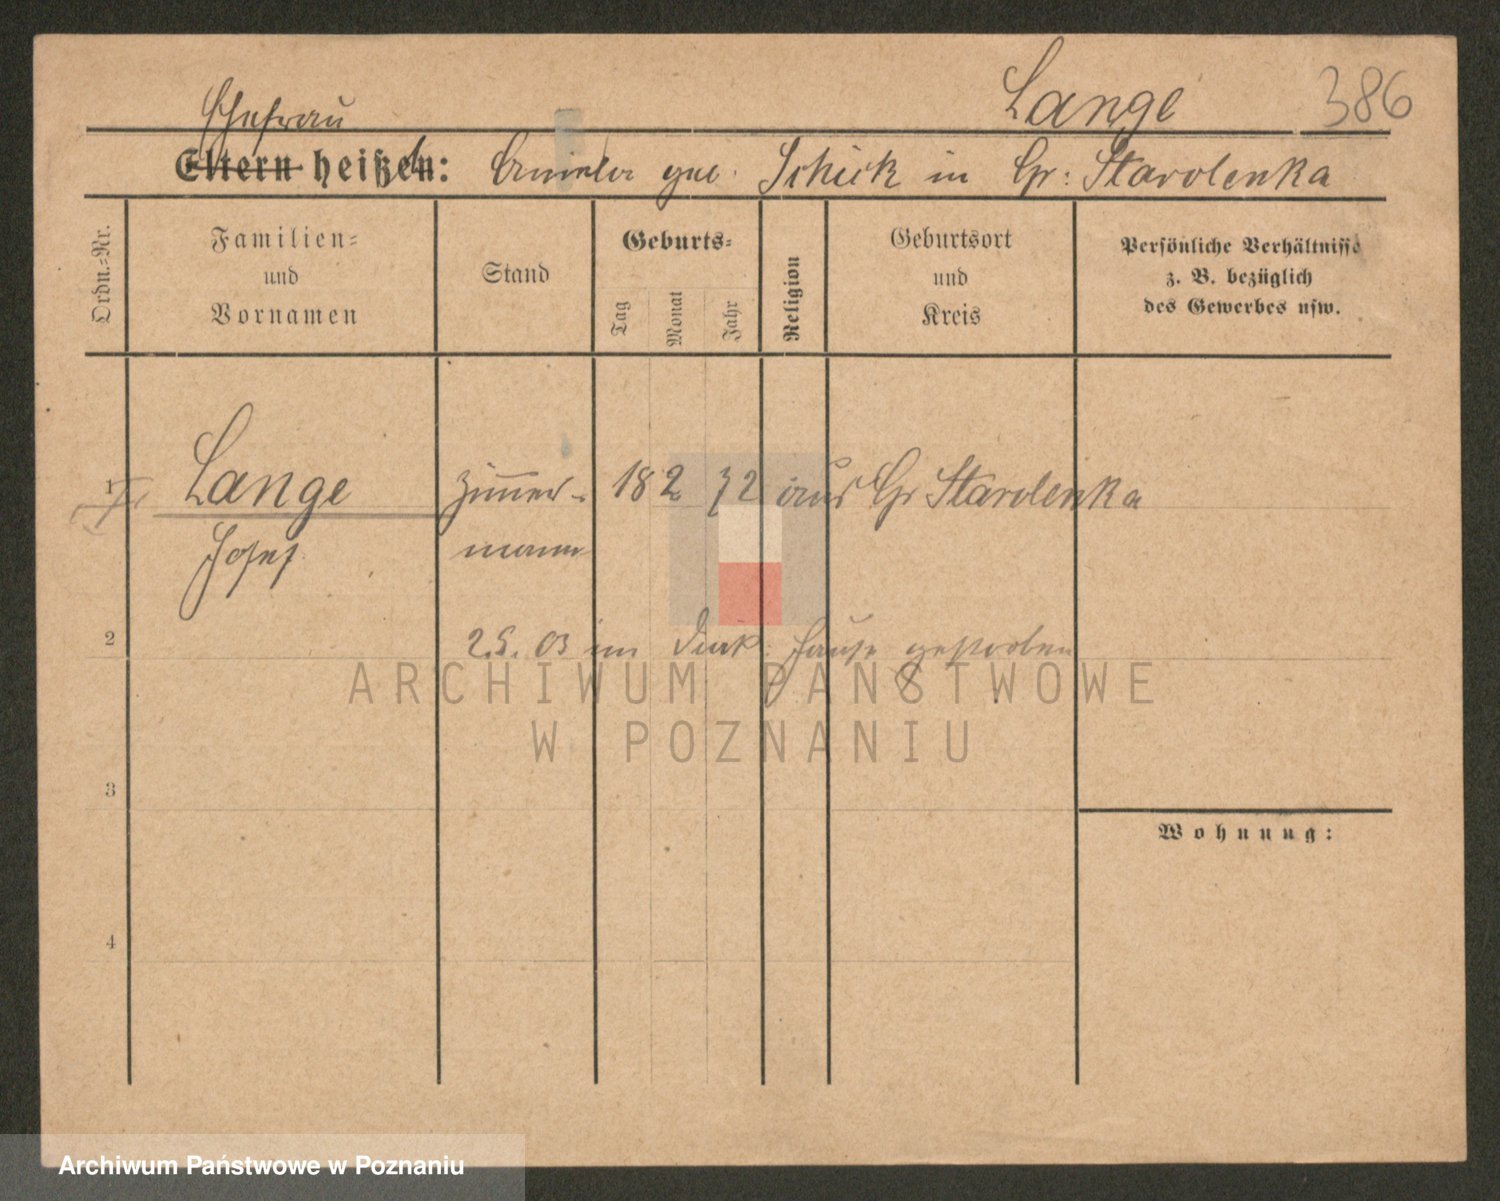 Lange 386
Ehefrau
Eltern heißen: geb. Schick in Gr: Starolenka
Ordn.-Nr.
Familien=
und
Vornamen
Stand
Geburts=
Tag
Monat
Jahr
Religion
Geburtsort
und
Kreis
Persönliche Verhältnisse
z. B. bezüglich
des Gewerbes usw.
1 Lange Zimmer- 18 2 72 aus Gr Starolenka
Josef mann
2 2.5.03 im Diak. Hause gestorben
ARCHIWUM PAŃSTWOWE
W POZNANIU
3
Wohnung:
4
Archiwum Państwowe w Poznaniu